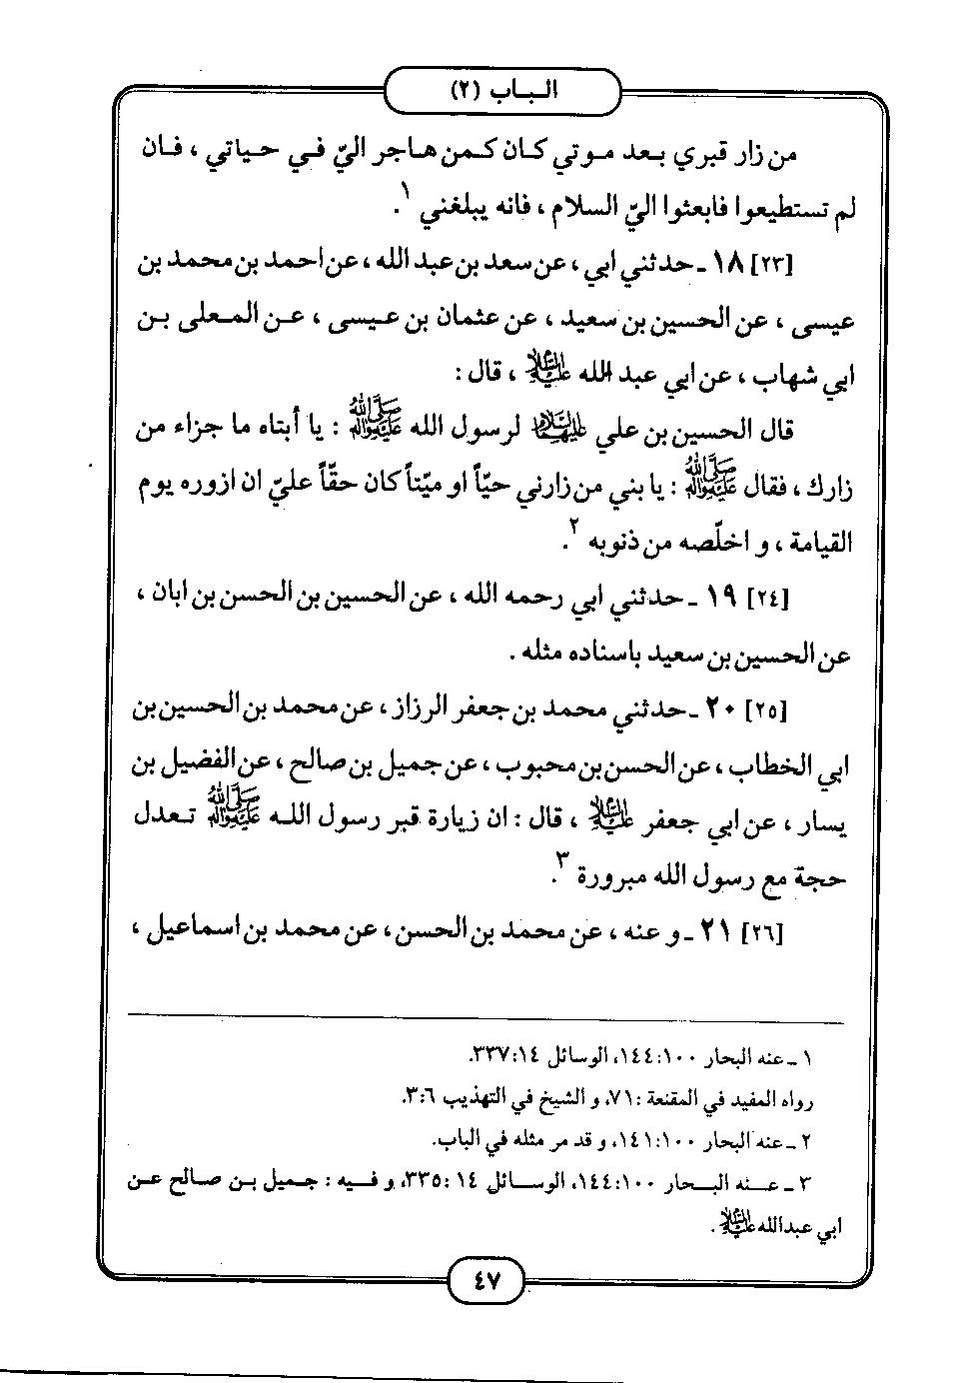 الباب (٢)
من زار قبري بعد موتي كان كمن هاجر اليّ في حياتي ، فان
لم تستطيعوا فابعثوا اليّ السلام ، فانه يبلغني ١.
[٢٣] ١٨ ـ حدثني ابي ، عن سعد بن عبد الله ، عن احمد بن محمد بن
عيسى ، عن الحسين بن سعيد ، عن عثمان بن عيسى ، عن المعلى بن
ابي شهاب ، عن ابي عبد الله عليه السلام ، قال :
قال الحسين بن علي عليهما السلام لرسول الله صلى الله عليه وآله : يا أبتاه ما جزاء من
زارك ، فقال صلى الله عليه وآله : يا بني من زارني حيّاً او ميّتاً كان حقّاً عليّ ان ازوره يوم
القيامة ، و اخلّصه من ذنوبه ٢.
[٢٤] ١٩ ـ حدثني ابي رحمه الله ، عن الحسين بن الحسن بن ابان ،
عن الحسين بن سعيد باسناده مثله .
[٢٥] ٢٠ ـ حدثني محمد بن جعفر الرزاز ، عن محمد بن الحسين بن
ابي الخطاب ، عن الحسن بن محبوب ، عن جميل بن صالح ، عن الفضيل بن
يسار ، عن ابي جعفر عليه السلام ، قال : ان زيارة قبر رسول الله صلى الله عليه وآله تعدل
حجة مع رسول الله مبرورة ٣.
[٢٦] ٢١ ـ و عنه ، عن محمد بن الحسن ، عن محمد بن اسماعيل ،
١ ـ عنه البحار ١٠٠:١٤٤، الوسائل ١٤:٣٣٧.
رواه المفيد في المقنعة :٧١، و الشيخ في التهذيب ٦:٣.
٢ ـ عنه البحار ١٠٠:١٤١، و قد مر مثله في الباب.
٣ ـ عنه البحار ١٠٠:١٤٤، الوسائل ١٤ :٣٣٥، و فيه : جميل بن صالح عن
ابي عبدالله عليه السلام .
٤٧